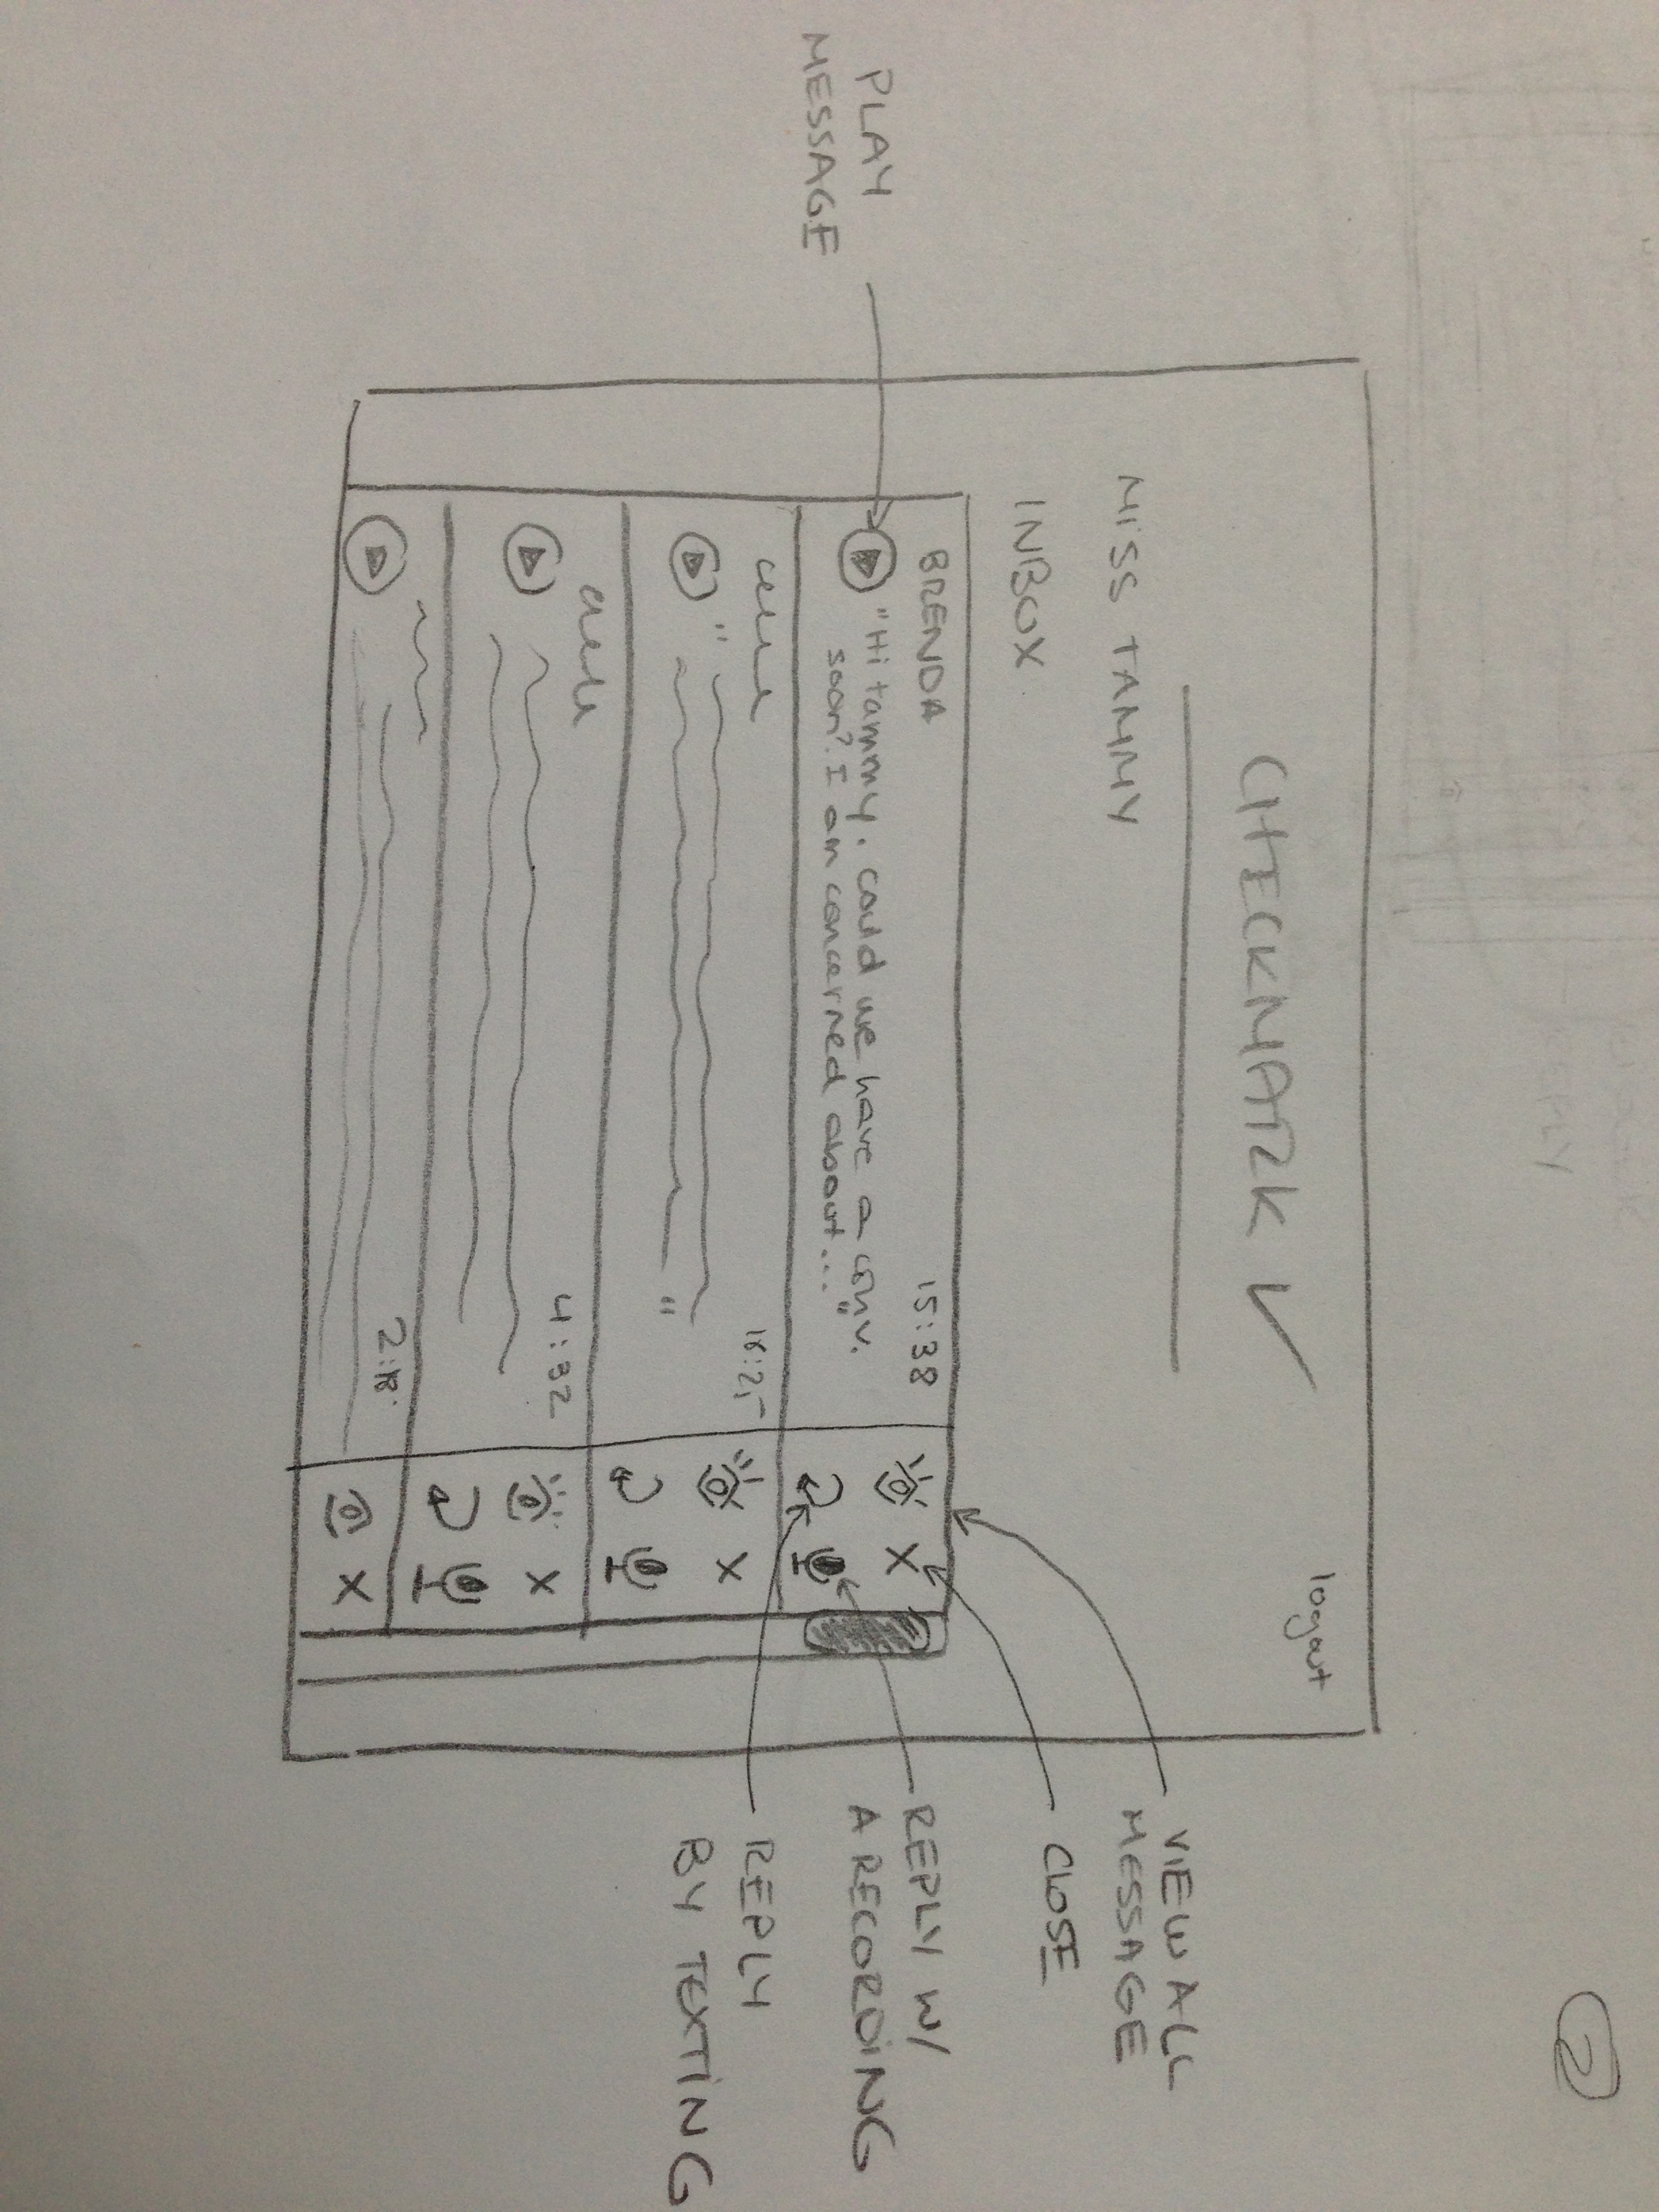 2
logout
CHECKMARK ✓
MISS TAMMY
INBOX
BRENDA 15:38
"Hi tammy. could we have a conv.
soon? I am concerned about..."
4:32
2:18
PLAY
MESSAGE
VIEW ALL
MESSAGE
CLOSE
REPLY W/
A RECORDING
REPLY
BY TEXTING